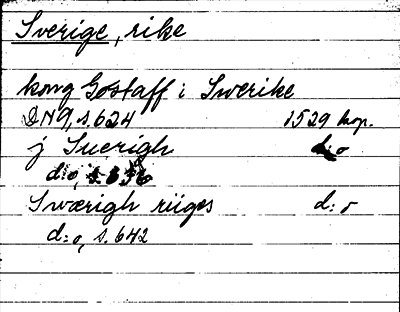 Sverige, rike
kong Gostaff i Swerike
DN 9, s. 624 1529 kop.
j Suerigh d:o
d:o, s. 636
Swærigh riiges d:o
d:o, s. 642